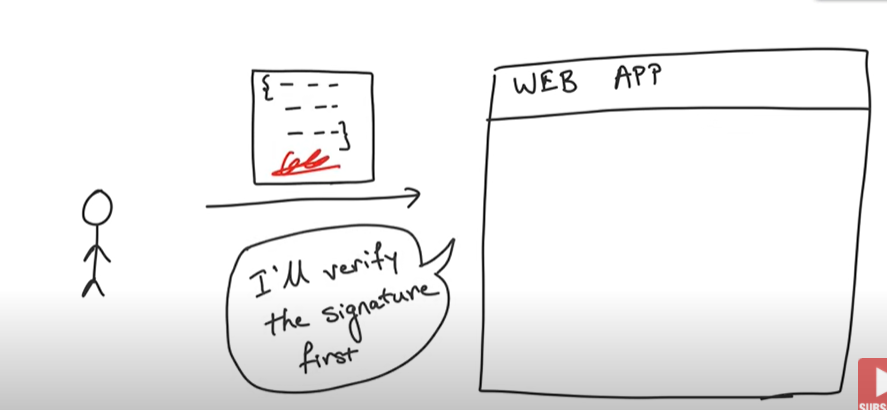 WEB APP
{- - -
- - -
- - -}
I'll verify
the signature
first
SUBS